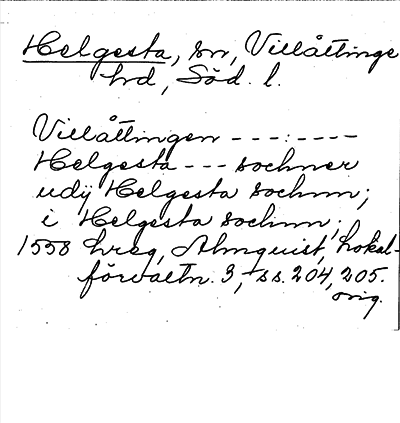 Helgesta, sn, Villåttinge
hd, Söd. l.
Villåttingen ---:----
Helgesta --- sochner
udij Helgesta sochnn;
i Helgesta sochnn;
1558 hreg, Almquist, Lokal-
förvaltn. 3, ss. 204, 205.
orig.